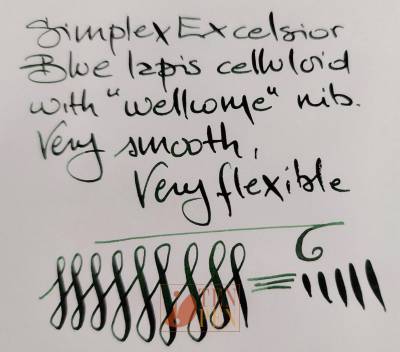 Simplex Excelsior
Blue lapis celluloid
with "wellcome" nib.
Very smooth,
Very flexible